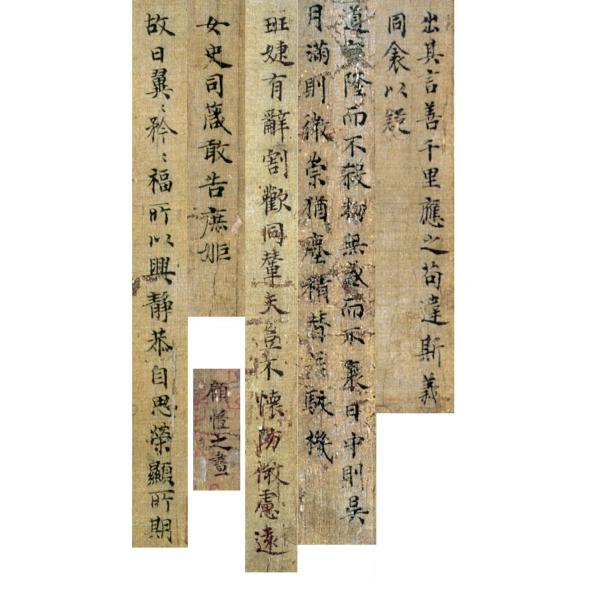 出其言善千里應之苟違斯義
同衾以疑
道罔隆而不殺物無盛而不衰日中則昃
月滿則微崇猶塵積替若駭機
班婕有辭割歡同輦夫豈不懷防微慮遠
女史司箴敢告庶姬
顧愷之畫
故曰翼〻矜〻福所以興靜恭自思榮顯所期